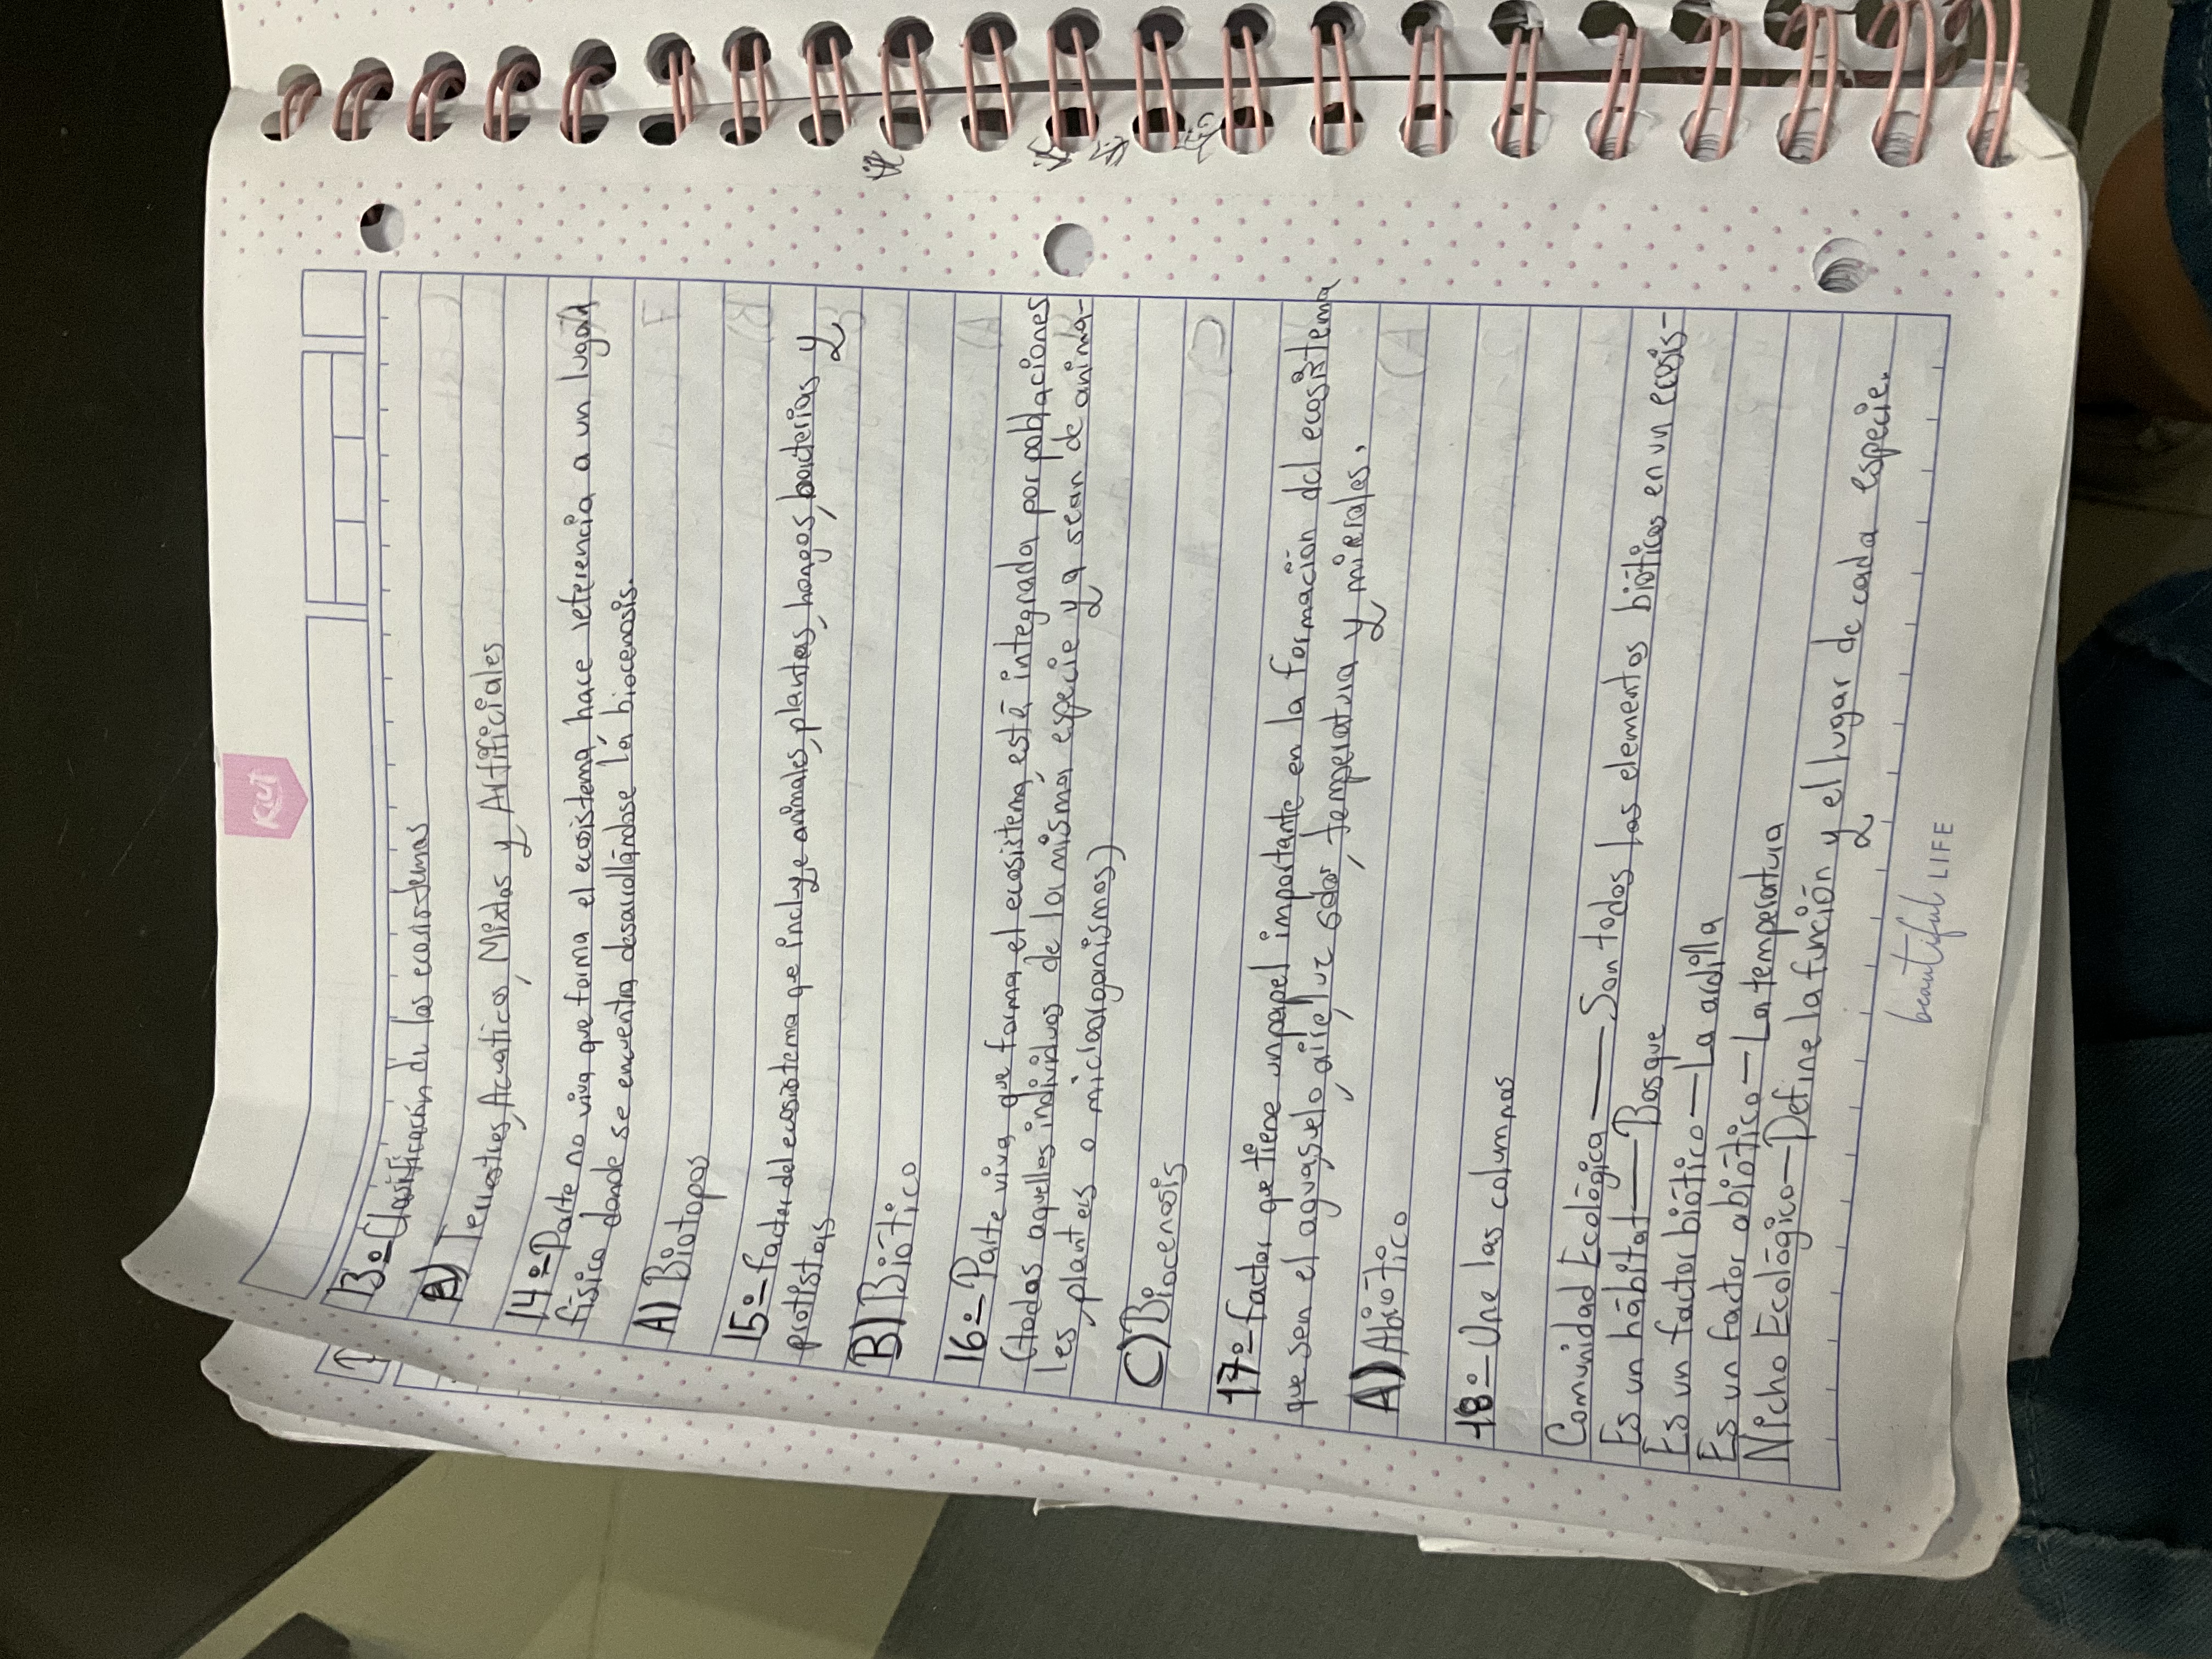 Kiut
13º- Clasificación de los ecosistemas
A) Terrestres, Acuaticos, Mixtos y Artificiales
14º- Parte no viva que forma el ecosistema, hace referencia a un lugar
físico donde se encuentra desarrollándose la biocenosis.
A) Biotopos
15º- factor del ecosistema que incluye animales, plantas, hongos, bacterias y
protistas
B) Biótico
16º- Parte viva que forma el ecosistema, está integrada por poblaciones
(todos aquellos individuos de la misma especie ya sean de anima-
les, plantas o microorganismos)
C) Biocenosis
17º- factor que tiene un papel importante en la formación del ecosistema
que son el agua, suelo, aire, luz solar, temperatura y mierales.
A) Abiótico
18º- Une las columnas
Comunidad Ecológica — Son todos los elementos bióticos en un ecosis-
Es un hábitat — Bosque
Es un factor biótico — La ardilla
Es un factor abiótico — La temperatura
Nicho Ecológico — Define la función y el lugar de cada especie.
beautiful LIFE